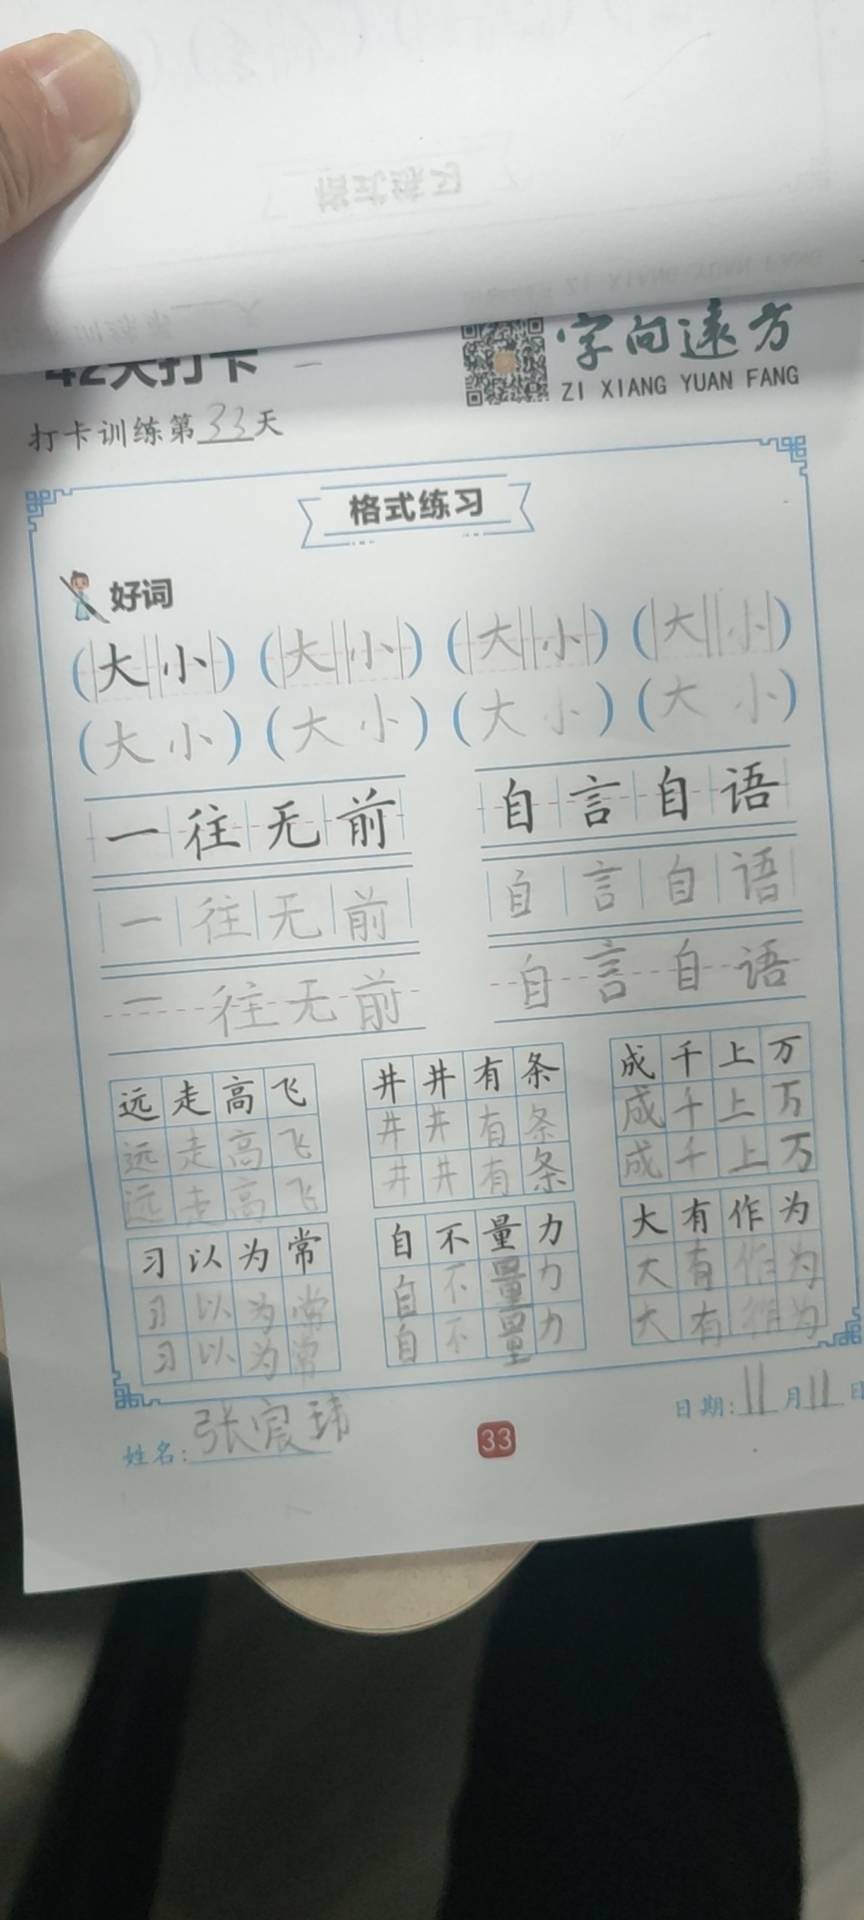 42天打卡
字向远方
ZI XIANG YUAN FANG
打卡训练第33天
格式练习
好词
(大小) (大小) (大小) (大小)
(大小) (大小) (大小) (大小)
一往无前 自言自语
一往无前 自言自语
一往无前 自言自语
远走高飞 井井有条 成千上万
远走高飞 井井有条 成千上万
远走高飞 井井有条 成千上万
习以为常 自不量力 大有作为
习以为常 自不量力 大有作为
习以为常 自不量力 大有作为
姓名:张宸玮
33
日期:11月11日